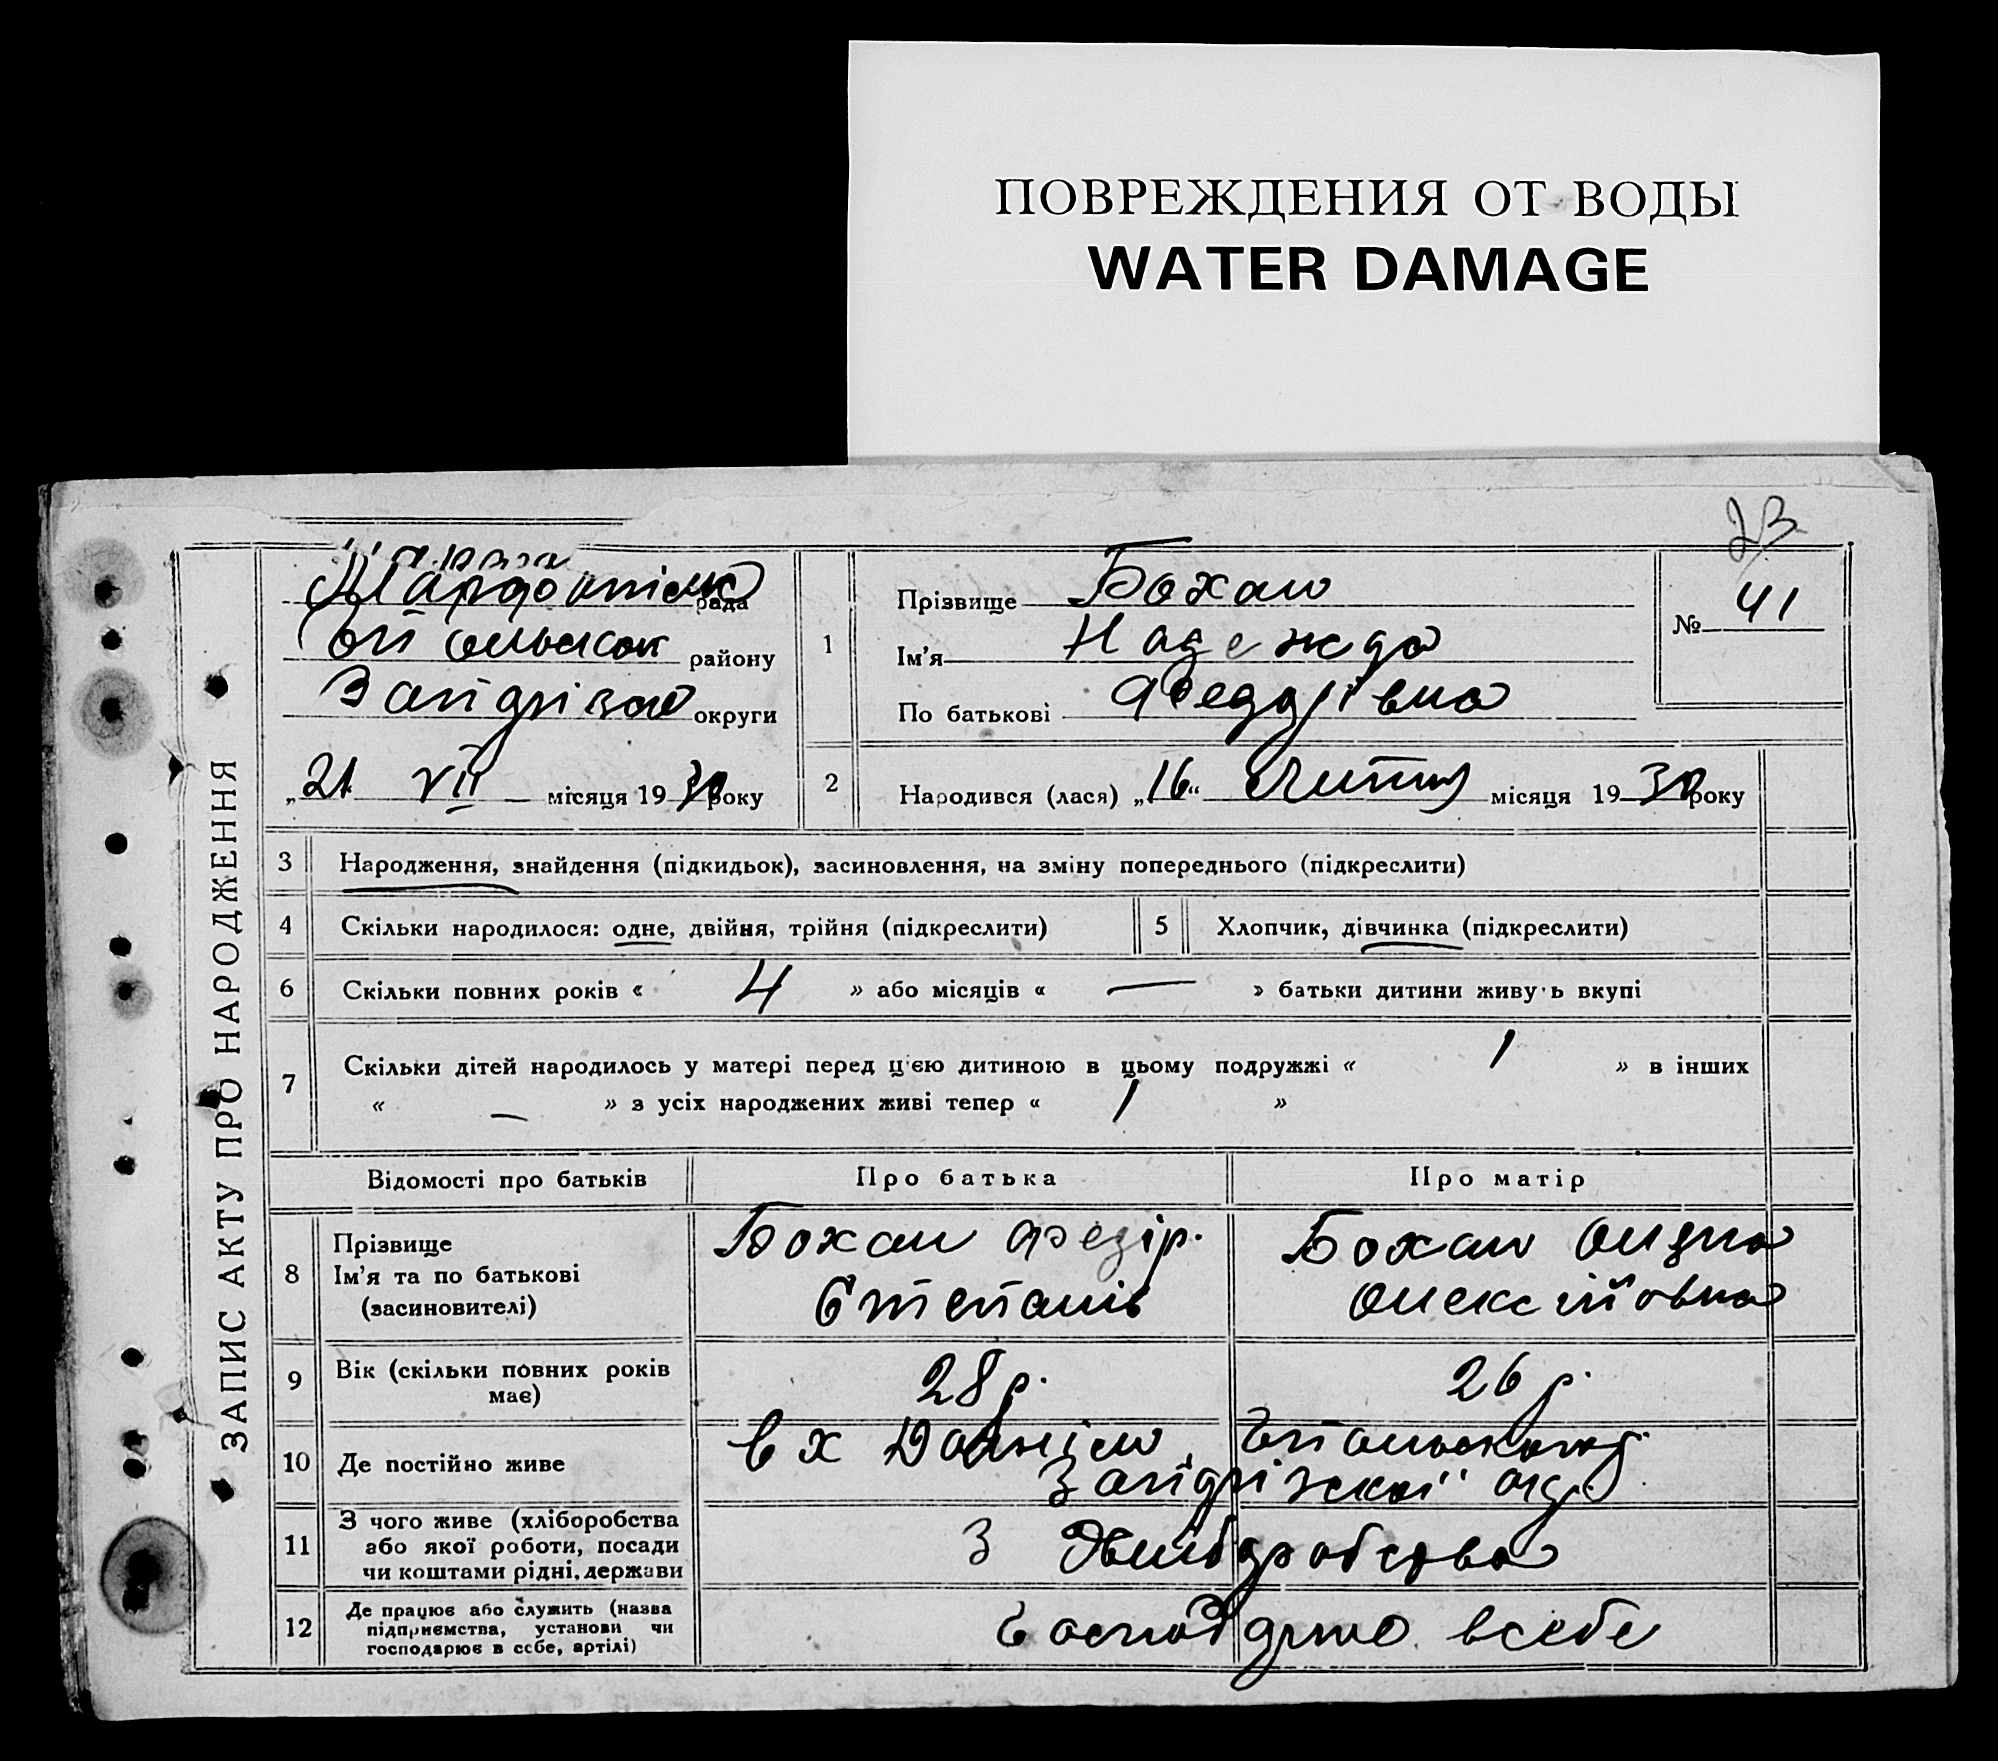 ПОВРЕЖДЕНИЯ ОТ ВОДЫ
WATER DAMAGE
23
ЗАПИС АКТУ ПРО НАРОДЖЕННЯ
рада
району
округи
„21 VII місяця 1930 року
1
Прізвище Бохан
Ім'я Надежда
По батькові Федорівна
№ 41
2
Народився (лася) „16“ Липня місяця 1930 року
3 Народження, знайдення (підкидьок), засиновлення, на зміну попереднього (підкреслити)
4 Скільки народилося: одне, двійня, трійня (підкреслити) 5 Хлопчик, дівчинка (підкреслити)
6 Скільки повних років « 4 » або місяців « — » батьки дитини живуть вкупі
7 Скільки дітей народилось у матері перед ц'єю дитиною в цьому подружжі « 1 » в інших
« — » з усіх народжених живі тепер « 1 »
Відомості про батьків Про батька Про матір
8 Прізвище
Ім'я та по батькові
(засиновителі)
Бохан Федір.
Степанів
Бохан
Олексійовна
9 Вік (скільки повних років
має) 28 р. 26 р.
10 Де постійно живе в х
11 З чого живе (хліборобства
або якої роботи, посади
чи коштами рідні, держави
З Хліборобства
12 Де працює або служить (назва
підприємства, установи чи
господарює в себе, артілі)
всебе